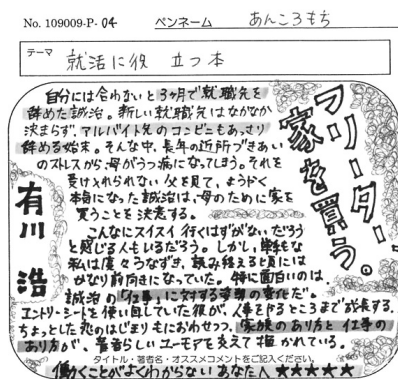 No. 109009-P-04 ペンネーム あんころもち
テーマ
就活に役立つ本
フリーター、
家を買う。
有川 浩
自分には合わないと3ヶ月で就職先を
辞めた誠治。新しい就職先はなかなか
決まらず、アルバイト先のコンビニもあっさり
辞める始末。そんな中、長年の近所づきあい
のストレスから、母がうつ病になってしまう。それを
受け入れられない父を見て、ようやく
本気になった誠治は、母のために家を
買うことを決意する。
こんなにスイスイ行くはずがないだろう
と感じる人もいるだろう。しかし、単純な
私は度々うなずき、読み終える頃には
かなり前向きになっていた。特に面白いのは、
誠治の「仕事」に対する姿勢の変化だ。
エントリーシートを使い回していた彼が、人事をやるところまで成長する。
ちょっとした恋のはじまりもにおわせつつ、家族のあり方と仕事の
あり方が、素晴らしいユーモアを交えて描かれている。
タイトル・著者名・オススメコメントをご記入ください。
働くことがよくわからないあなたへ★★★★★